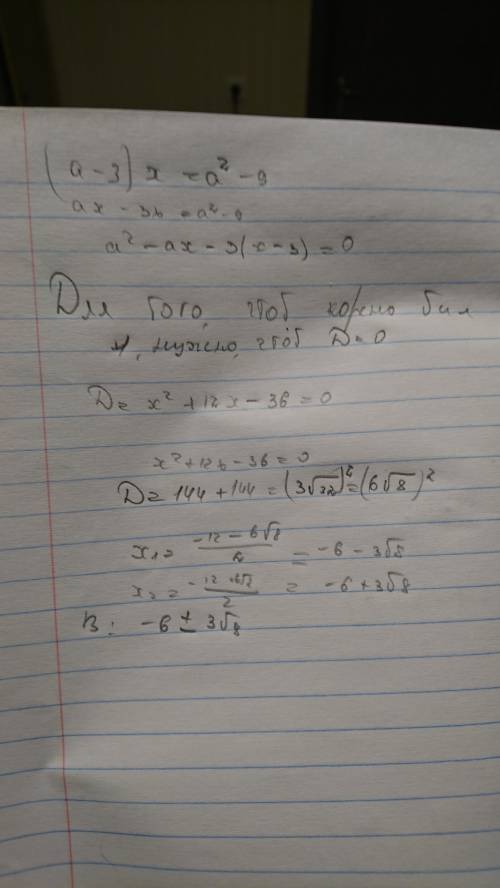 (a-3)x = a² - 9
ax - 3x = a² - 9
a² - ax - 3(x-3) = 0
Для того, чтоб корень был
1, нужно, чтоб D = 0
D = x² + 12x - 36 = 0
x² + 12x - 36 = 0
D = 144 + 144 = (3√32)² = (6√8)²
x₁ = (-12 - 6√8)/2 = -6 - 3√8
x₂ = (-12 + 6√8)/2 = -6 + 3√8
В: -6 ± 3√8